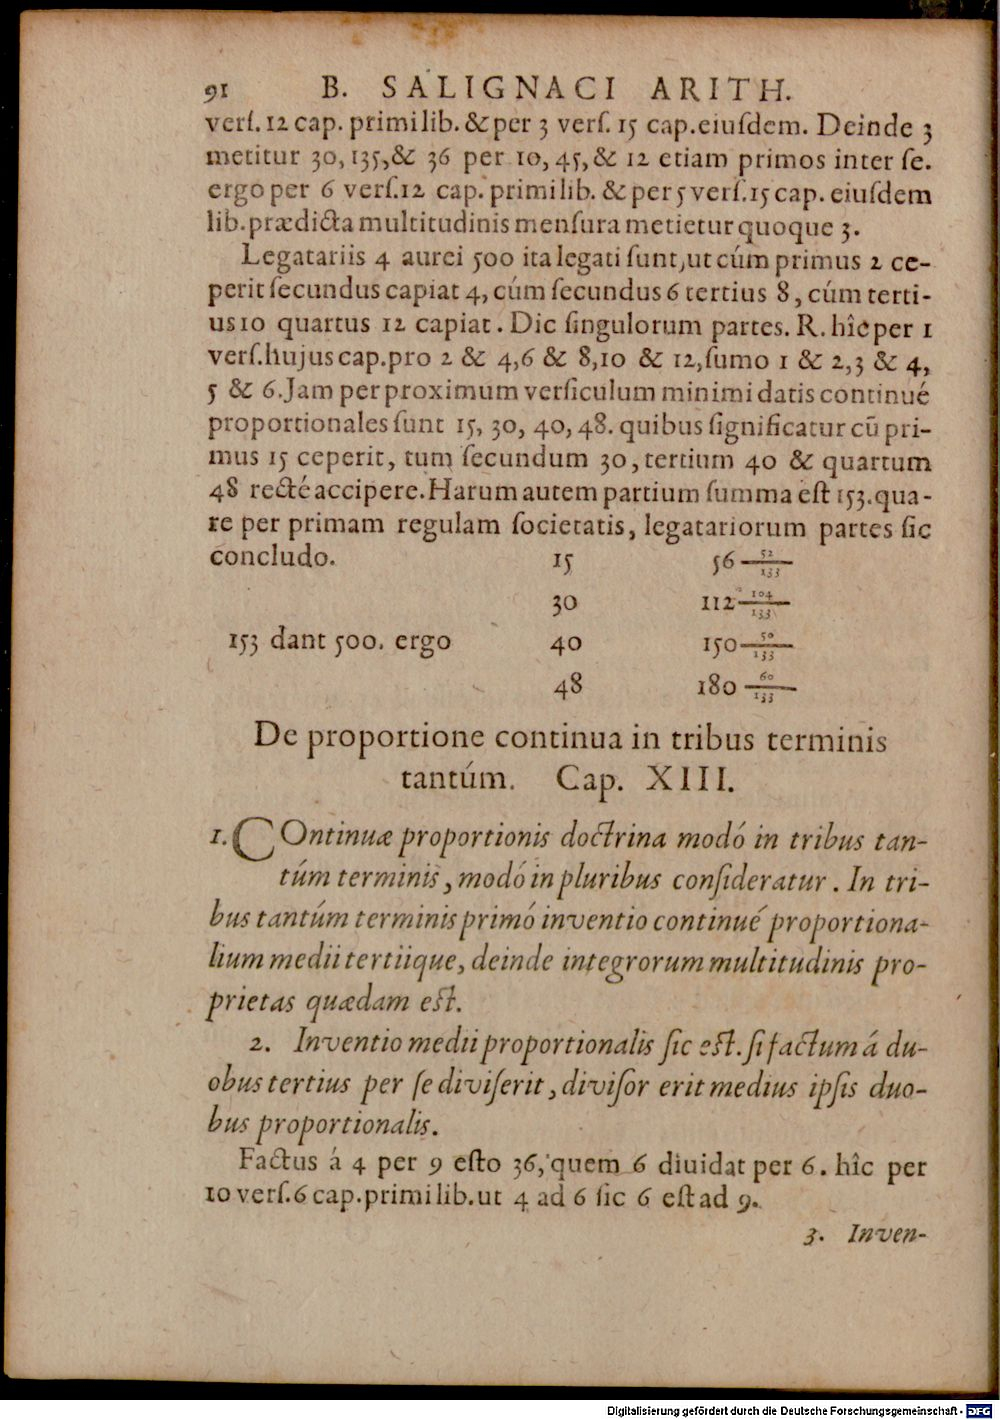 91 B. SALIGNACI ARITH.
verſ. 12 cap. primi lib. & per 3 verſ. 15 cap. eiuſdem. Deinde 3
metitur 30, 135, & 36 per 10, 45, & 12 etiam primos inter ſe.
ergo per 6 verſ. 12 cap. primi lib. & per 5 verſ. 15 cap. eiuſdem
lib. prædicta multitudinis menſura metietur quoque 3.
Legatariis 4 aurei 500 ita legati ſunt, ut cúm primus 2 ce-
perit ſecundus capiat 4, cúm ſecundus 6 tertius 8, cúm terti-
us 10 quartus 12 capiat. Dic ſingulorum partes. R. hîc per 1
verſ. hujus cap. pro 2 & 4, 6 & 8, 10 & 12, ſumo 1 & 2, 3 & 4,
5 & 6. Jam per proximum verſiculum minimi datis continué
proportionales ſunt 15, 30, 40, 48. quibus ſignificatur cū pri-
mus 15 ceperit, tum ſecundum 30, tertium 40 & quartum
48 recté accipere. Harum autem partium ſumma eſt 153. qua-
re per primam regulam ſocietatis, legatariorum partes ſic
concludo. 15 56 52/133
30 112 104/133
153 dant 500. ergo 40 150 50/133
48 180 60/133
De proportione continua in tribus terminis
tantúm. Cap. XIII.
1. COntinuæ proportionis doctrina modó in tribus tan-
túm terminis, modó in pluribus conſideratur. In tri-
bus tantúm terminis primó inventio continué proportiona-
lium medii tertiique, deinde integrorum multitudinis pro-
prietas quædam eſt.
2. Inventio medii proportionalis ſic eſt. ſi factum á du-
obus tertius per ſe diviſerit, diviſor erit medius ipſis duo-
bus proportionalis.
Factus á 4 per 9 eſto 36, quem 6 diuidat per 6. hîc per
10 verſ. 6 cap. primi lib. ut 4 ad 6 ſic 6 eſt ad 9.
3. Inven-
Digitalisierung gefördert durch die Deutsche Forschungsgemeinschaft - DFG